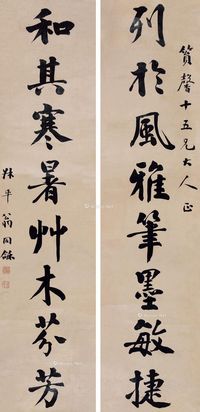 質馨十五兄大人正
列於風雅筆墨敏捷
和其寒暑艸木芬芳
妹平翁同龢